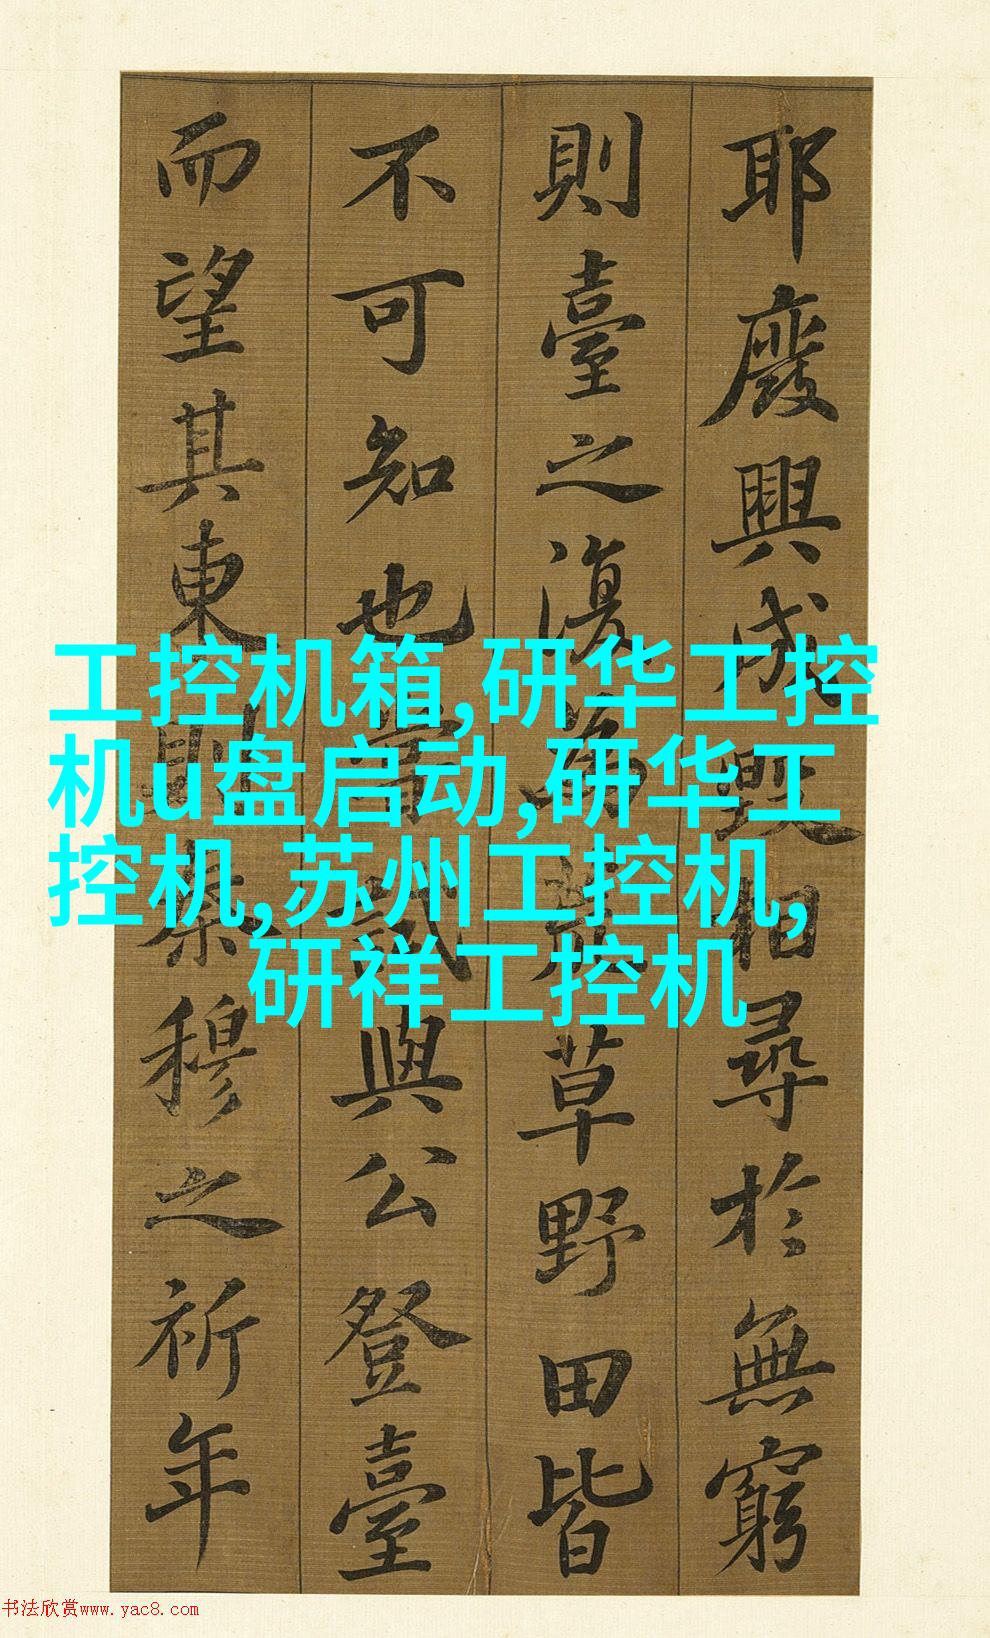 耶廢興成毀相尋於無窮
則臺之復為荒草野田皆
不可知也嘗試與公登臺
而望其東則秦穆之祈年
工控机箱,研华工控
机u盘启动,研华工
控机,苏州工控机,
研祥工控机
书法欣赏www.yac8.com